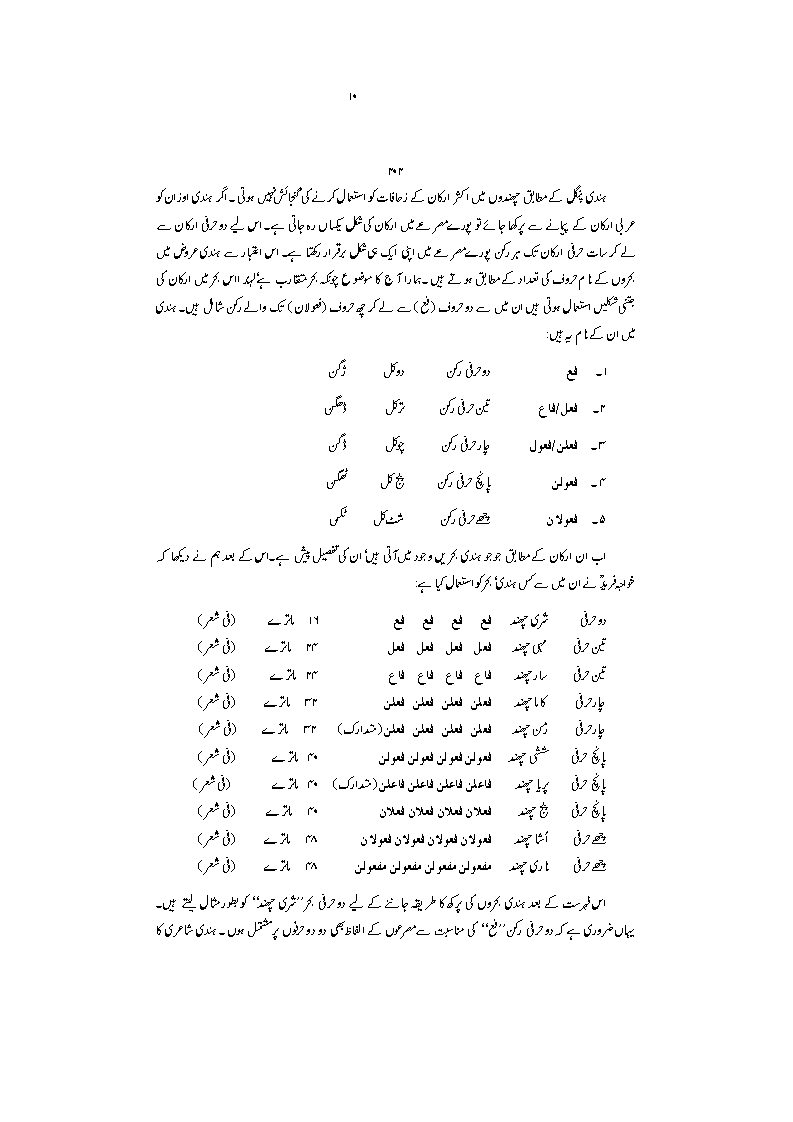 ۱۰
۴۰۲
ہندی پنگل کے مطابق چھندوں میں اکثر ارکان کے زحافات کو استعمال کرنے کی گنجائش نہیں ہوتی۔ اگر ہندی اوزان کو
عربی ارکان کے پیمانے سے پرکھا جائے تو پورے مصرعے میں ارکان کی شکل یکساں رہ جاتی ہے۔ اس لیے دو حرفی ارکان سے
لے کر سات حرفی ارکان تک ہر رکن پورے مصرعے میں اپنی ایک ہی شکل برقرار رکھتا ہے۔ اس اعتبار سے ہندی عروض میں
بحروں کے نام حروف کی تعداد کے مطابق ہوتے ہیں۔ ہمارا آج کا موضوع چونکہ بحر متقارب ہے‘ لہٰذا اس بحر میں ارکان کی
جتنی شکلیں استعمال ہوتی ہیں ان میں سے دو حروف (فع) سے لے کر چھ حروف (فعولان) تک والے رکن شامل ہیں۔ ہندی
میں ان کے نام یہ ہیں:
۱۔ فع دو حرفی رکن دوکل ژگن
۲۔ فعل/فاع تین حرفی رکن ترکل ڈھگن
۳۔ فعلن/فعول چار حرفی رکن چوکل ڈگن
۴۔ فعولن پانچ حرفی رکن پنج کل ٹھگن
۵۔ فعولان چھے حرفی رکن شٹ کل ٹگن
اب ان ارکان کے مطابق جو جو ہندی بحریں وجود میں آتی ہیں‘ ان کی تفصیل پیش ہے۔ اس کے بعد ہم نے دیکھا کہ
خواجہ فریدؒ نے ان میں سے کس ہندی بحر کو استعمال کیا ہے:
دو حرفی شری چھند فع فع فع فع ۱۶ ماترے (فی شعر)
تین حرفی مہی چھند فعل فعل فعل فعل ۲۴ ماترے (فی شعر)
تین حرفی سار چھند فاع فاع فاع فاع ۲۴ ماترے (فی شعر)
چار حرفی کاما چھند فعلن فعلن فعلن فعلن ۳۲ ماترے (فی شعر)
چار حرفی رمن چھند فعلن فعلن فعلن فعلن (متدارک) ۳۲ ماترے (فی شعر)
پانچ حرفی ششی چھند فعولن فعولن فعولن فعولن ۴۰ ماترے (فی شعر)
پانچ حرفی پریا چھند فاعلن فاعلن فاعلن فاعلن (متدارک) ۴۰ ماترے (فی شعر)
پانچ حرفی پنج چھند فعلان فعلان فعلان فعلان ۴۰ ماترے (فی شعر)
چھے حرفی اُشا چھند فعولان فعولان فعولان فعولان ۴۸ ماترے (فی شعر)
چھے حرفی ناری چھند مفعولن مفعولن مفعولن مفعولن ۴۸ ماترے (فی شعر)
اس فہرست کے بعد ہندی بحروں کی پرکھ کا طریقہ جاننے کے لیے دو حرفی بحر ’’شری چھند‘‘ کو بطور مثال لیتے ہیں۔
یہاں ضروری ہے کہ دو حرفی رکن ’’فع‘‘ کی مناسبت سے مصرعوں کے الفاظ بھی دو دو حرفوں پر مشتمل ہوں۔ ہندی شاعری کا